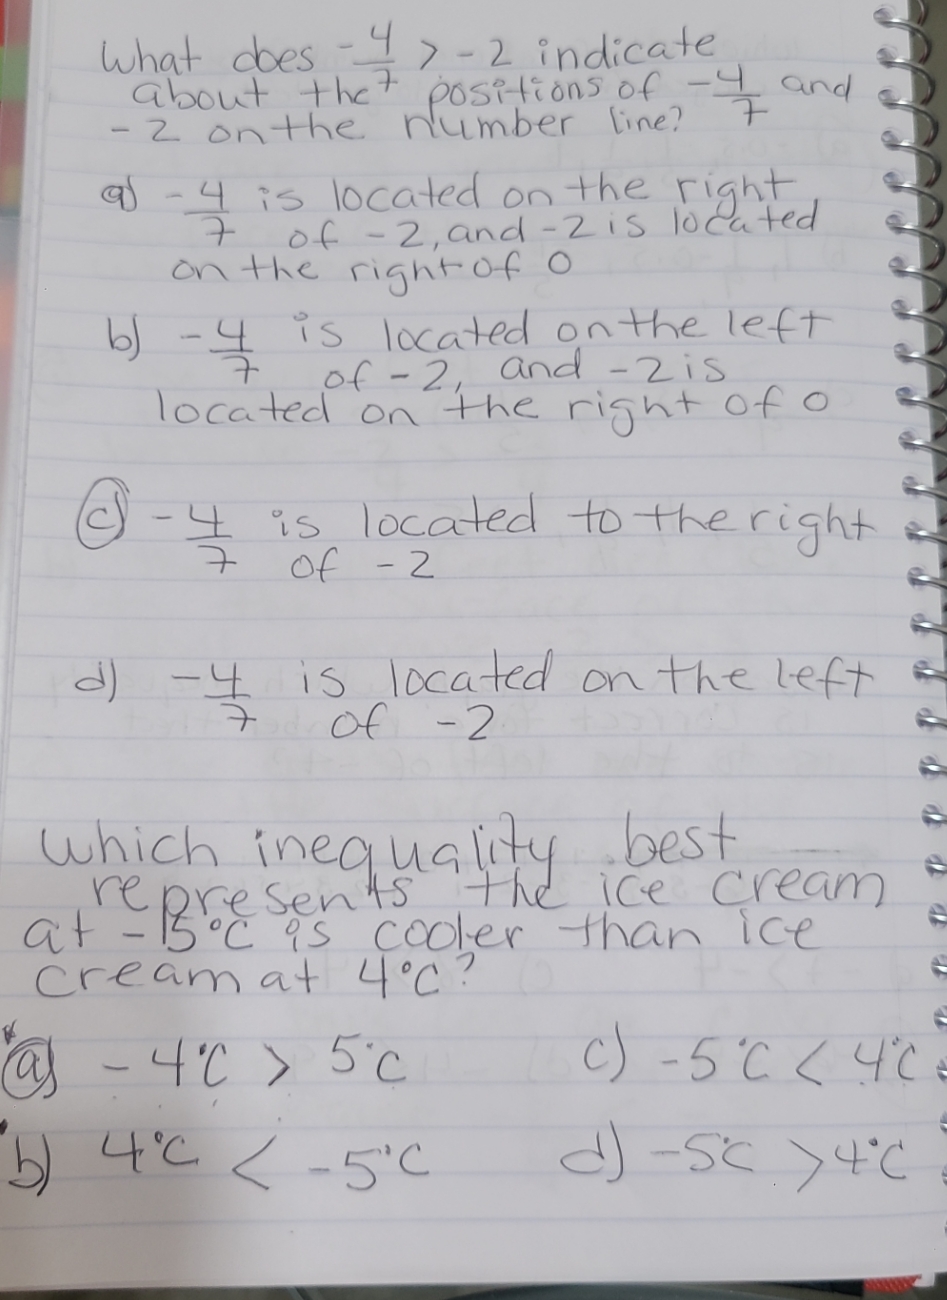 What does -4/7 > -2 indicate
about the positions of -4/7 and
-2 on the number line?
a) -4/7 is located on the right
of -2, and -2 is located
on the right of 0
b) -4/7 is located on the left
of -2, and -2 is
located on the right of 0
c) -4/7 is located to the right
of -2
d) -4/7 is located on the left
of -2
Which inequality best
represents the ice cream
at -15°C is cooler than ice
cream at 4°C?
a) -4°C > 5°C c) -5°C < 4°C
b) 4°C < -5°C d) -5°C > 4°C